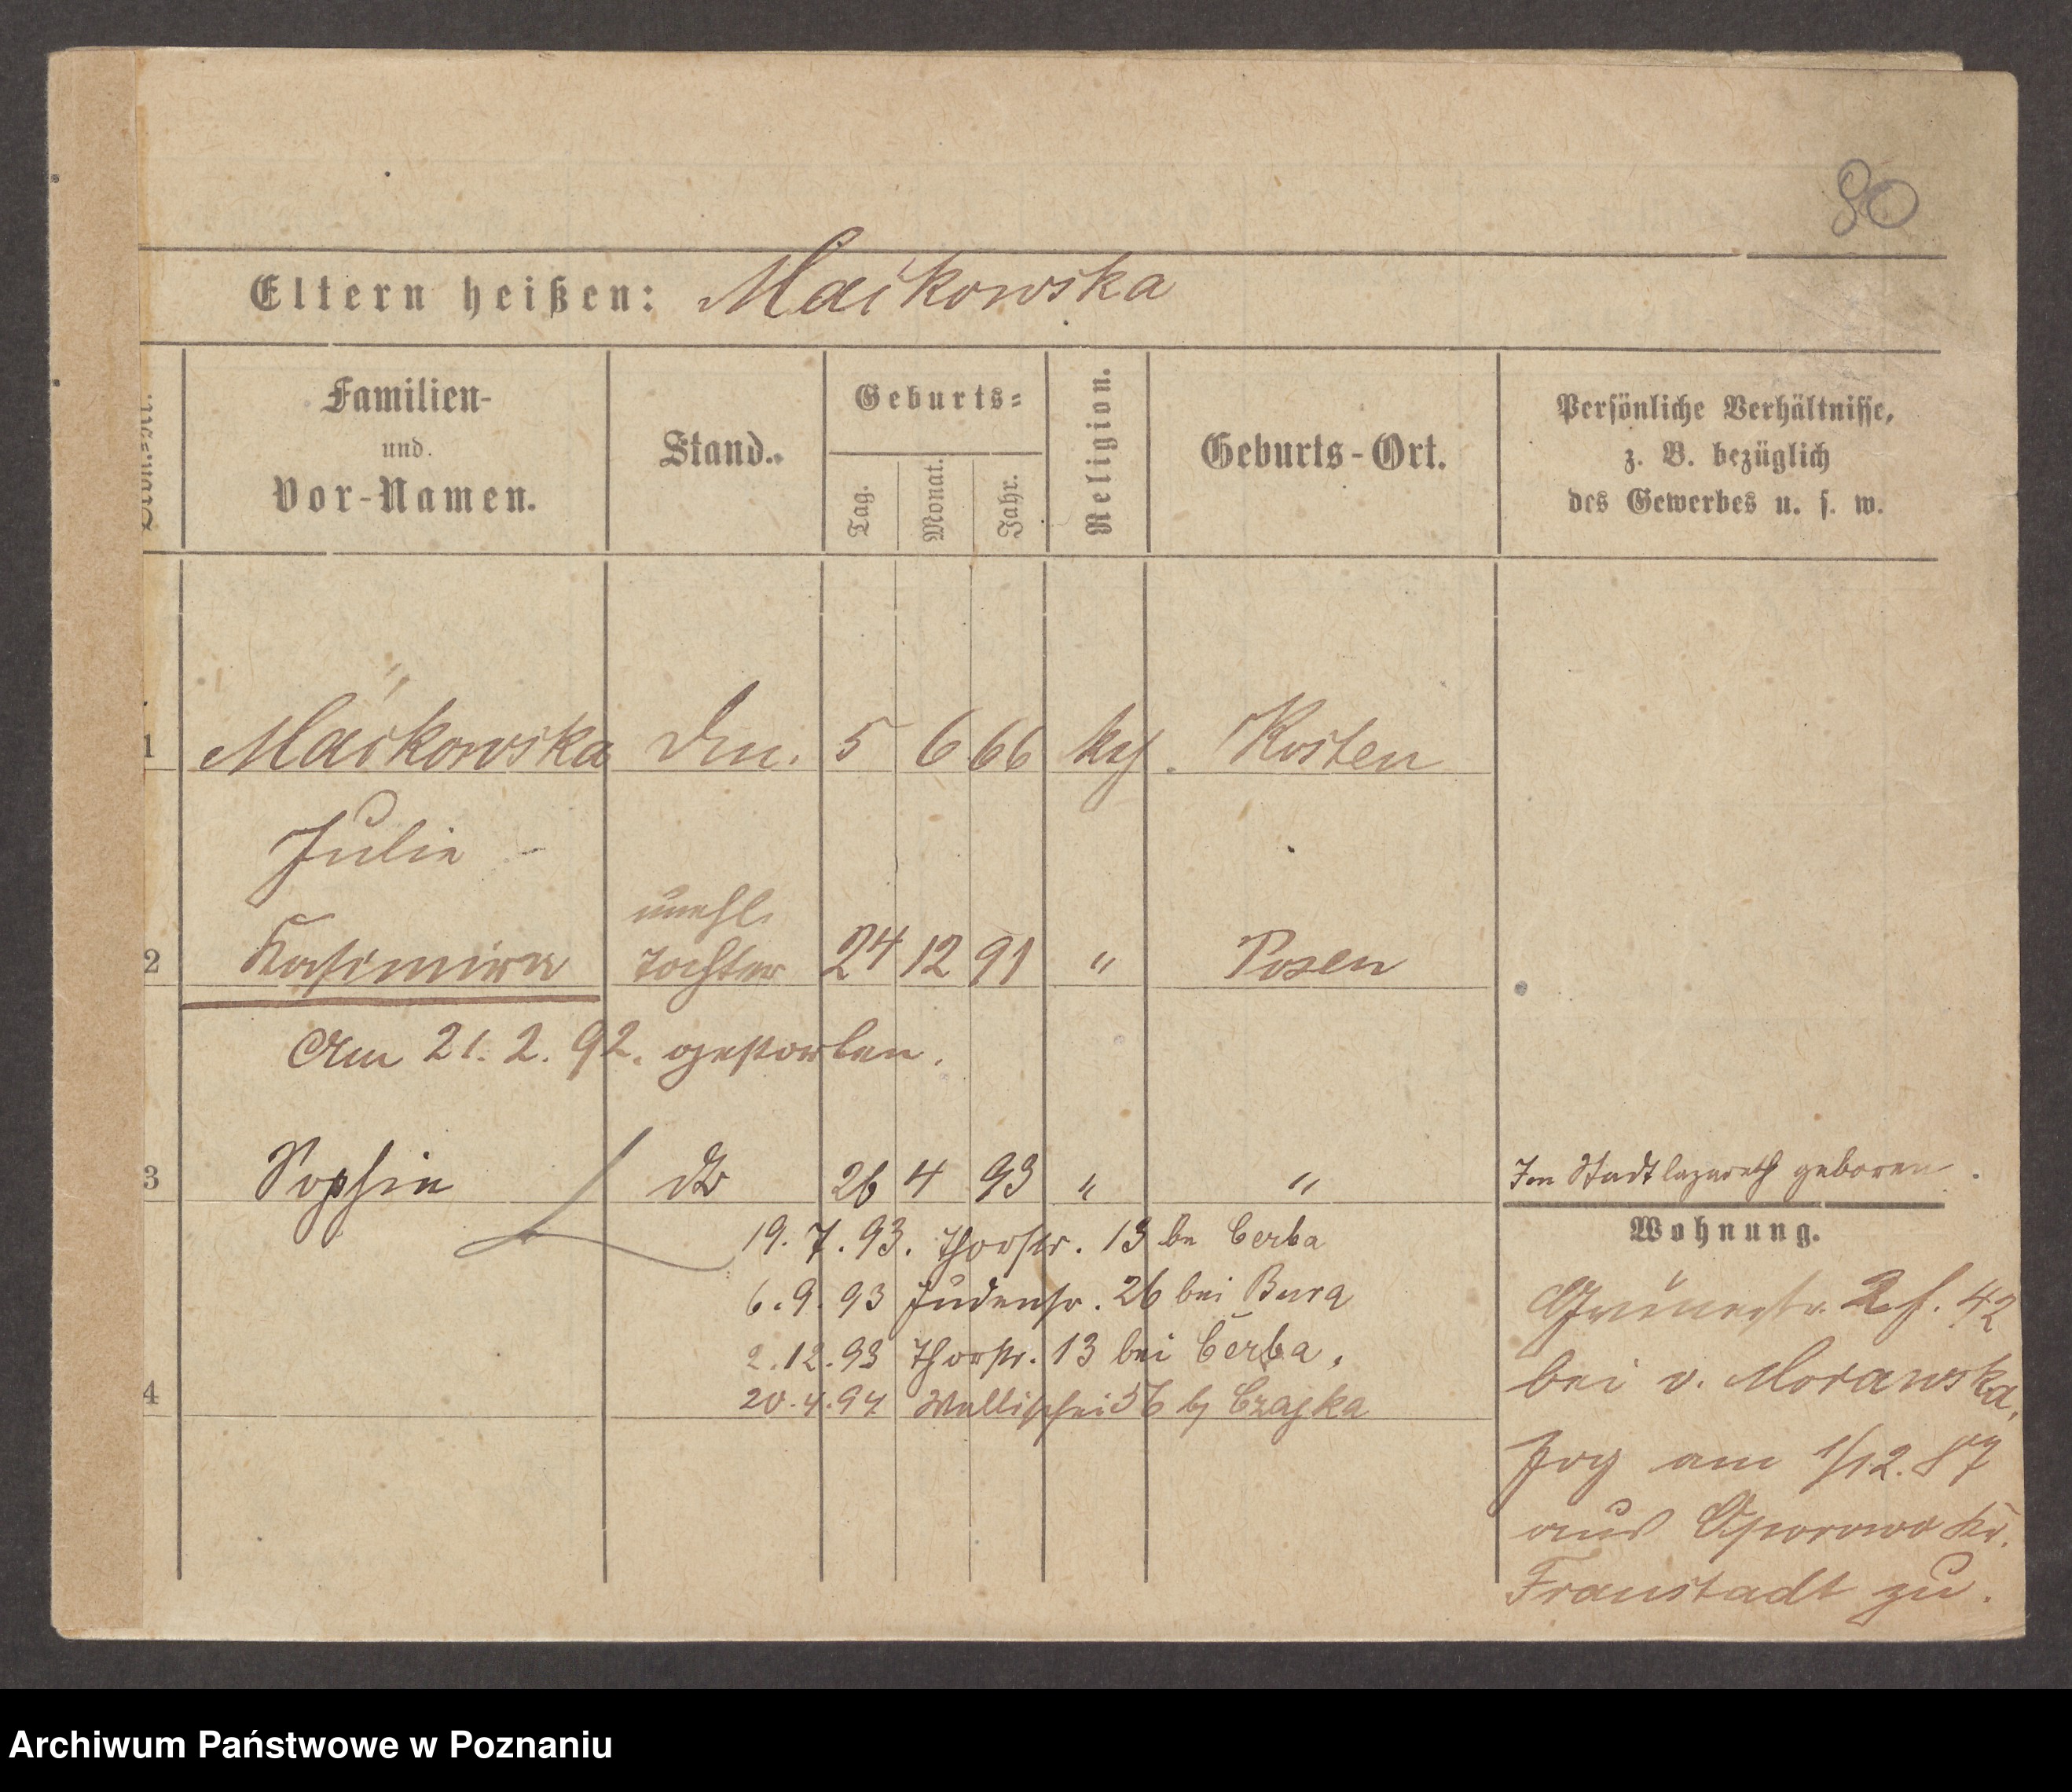 80
Eltern heißen: Maćkowska
Familien-
und
Vor-Namen.
Stand.
Geburts=
Tag.
Monat.
Jahr.
Religion.
Geburts-Ort.
Persönliche Verhältnisse,
z. B. bezüglich
des Gewerbes u. s. w.
1 Maćkowska 5 6 66 Kosten
Julie
unehl.
2 Kasimira Tochter 24 12 91 " Posen
Am 21. 2. 92. gestorben.
3 Sophie dto 26 4 93 " " Im Stadtlazareth geboren.
Wohnung.
19. 7. 93. Thorstr. 13 be Cerba
6. 9. 93 Judenstr. 26 bei Bura
2. 12. 93 Thorstr. 13 bei Cerba,
4 20. 4. 94 Wallischei b/ Czajka
Grünestr. 2 f. 42
bei v. Morawska,
Zog am 1/12. 87
aus Kr.
Fraustadt zu.
Archiwum Państwowe w Poznaniu